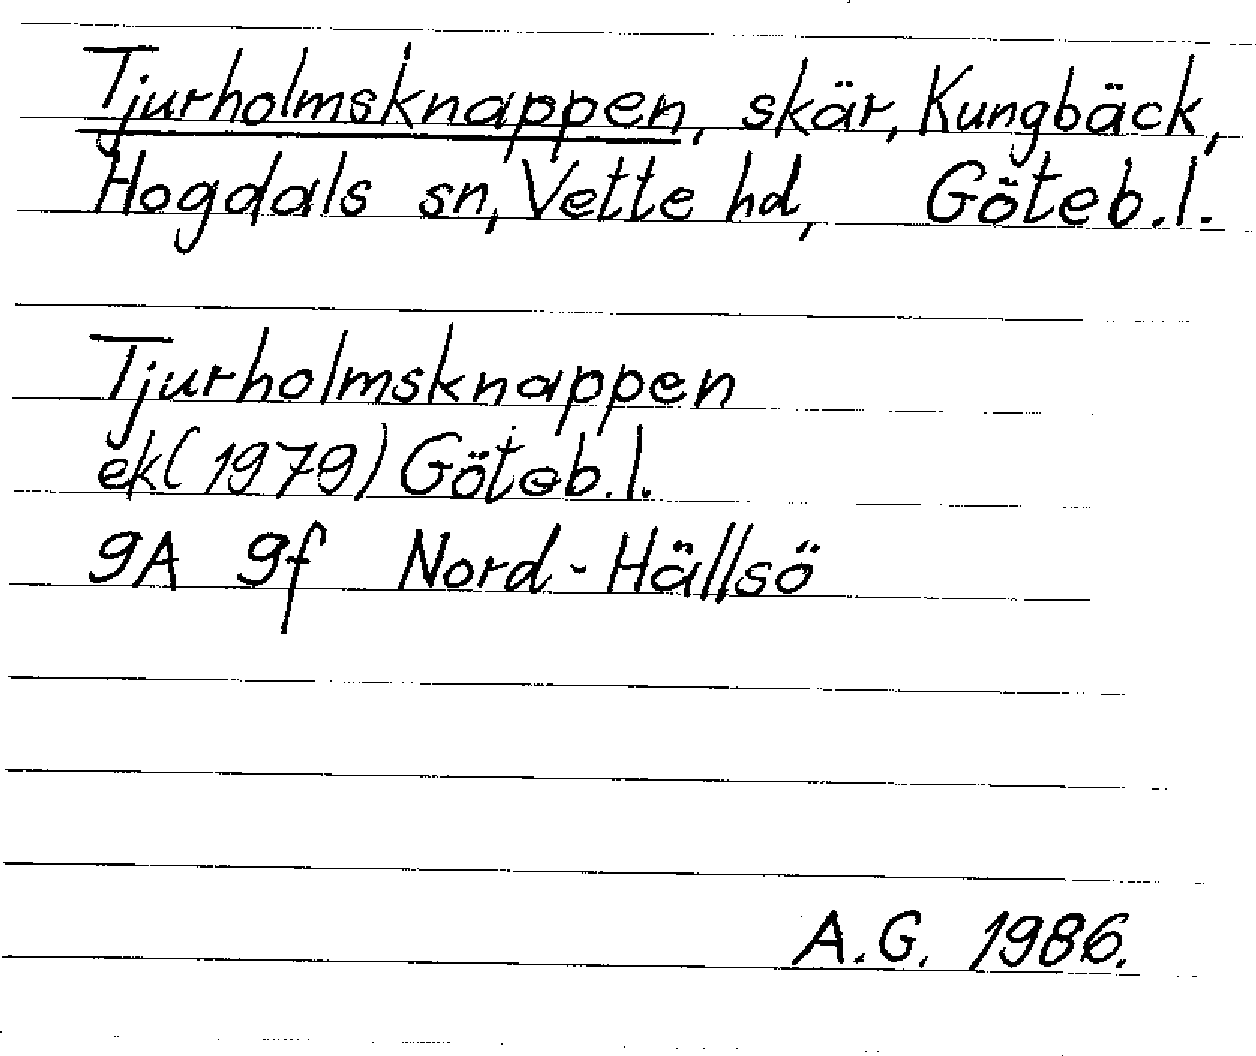 Tjurholmsknappen, skär, Kungbäck,
Hogdals sn, Vette hd, Göteb.l.
Tjurholmsknappen
ek(1979) Göteb.l.
9A 9f Nord-Hällsö
A.G. 1986.